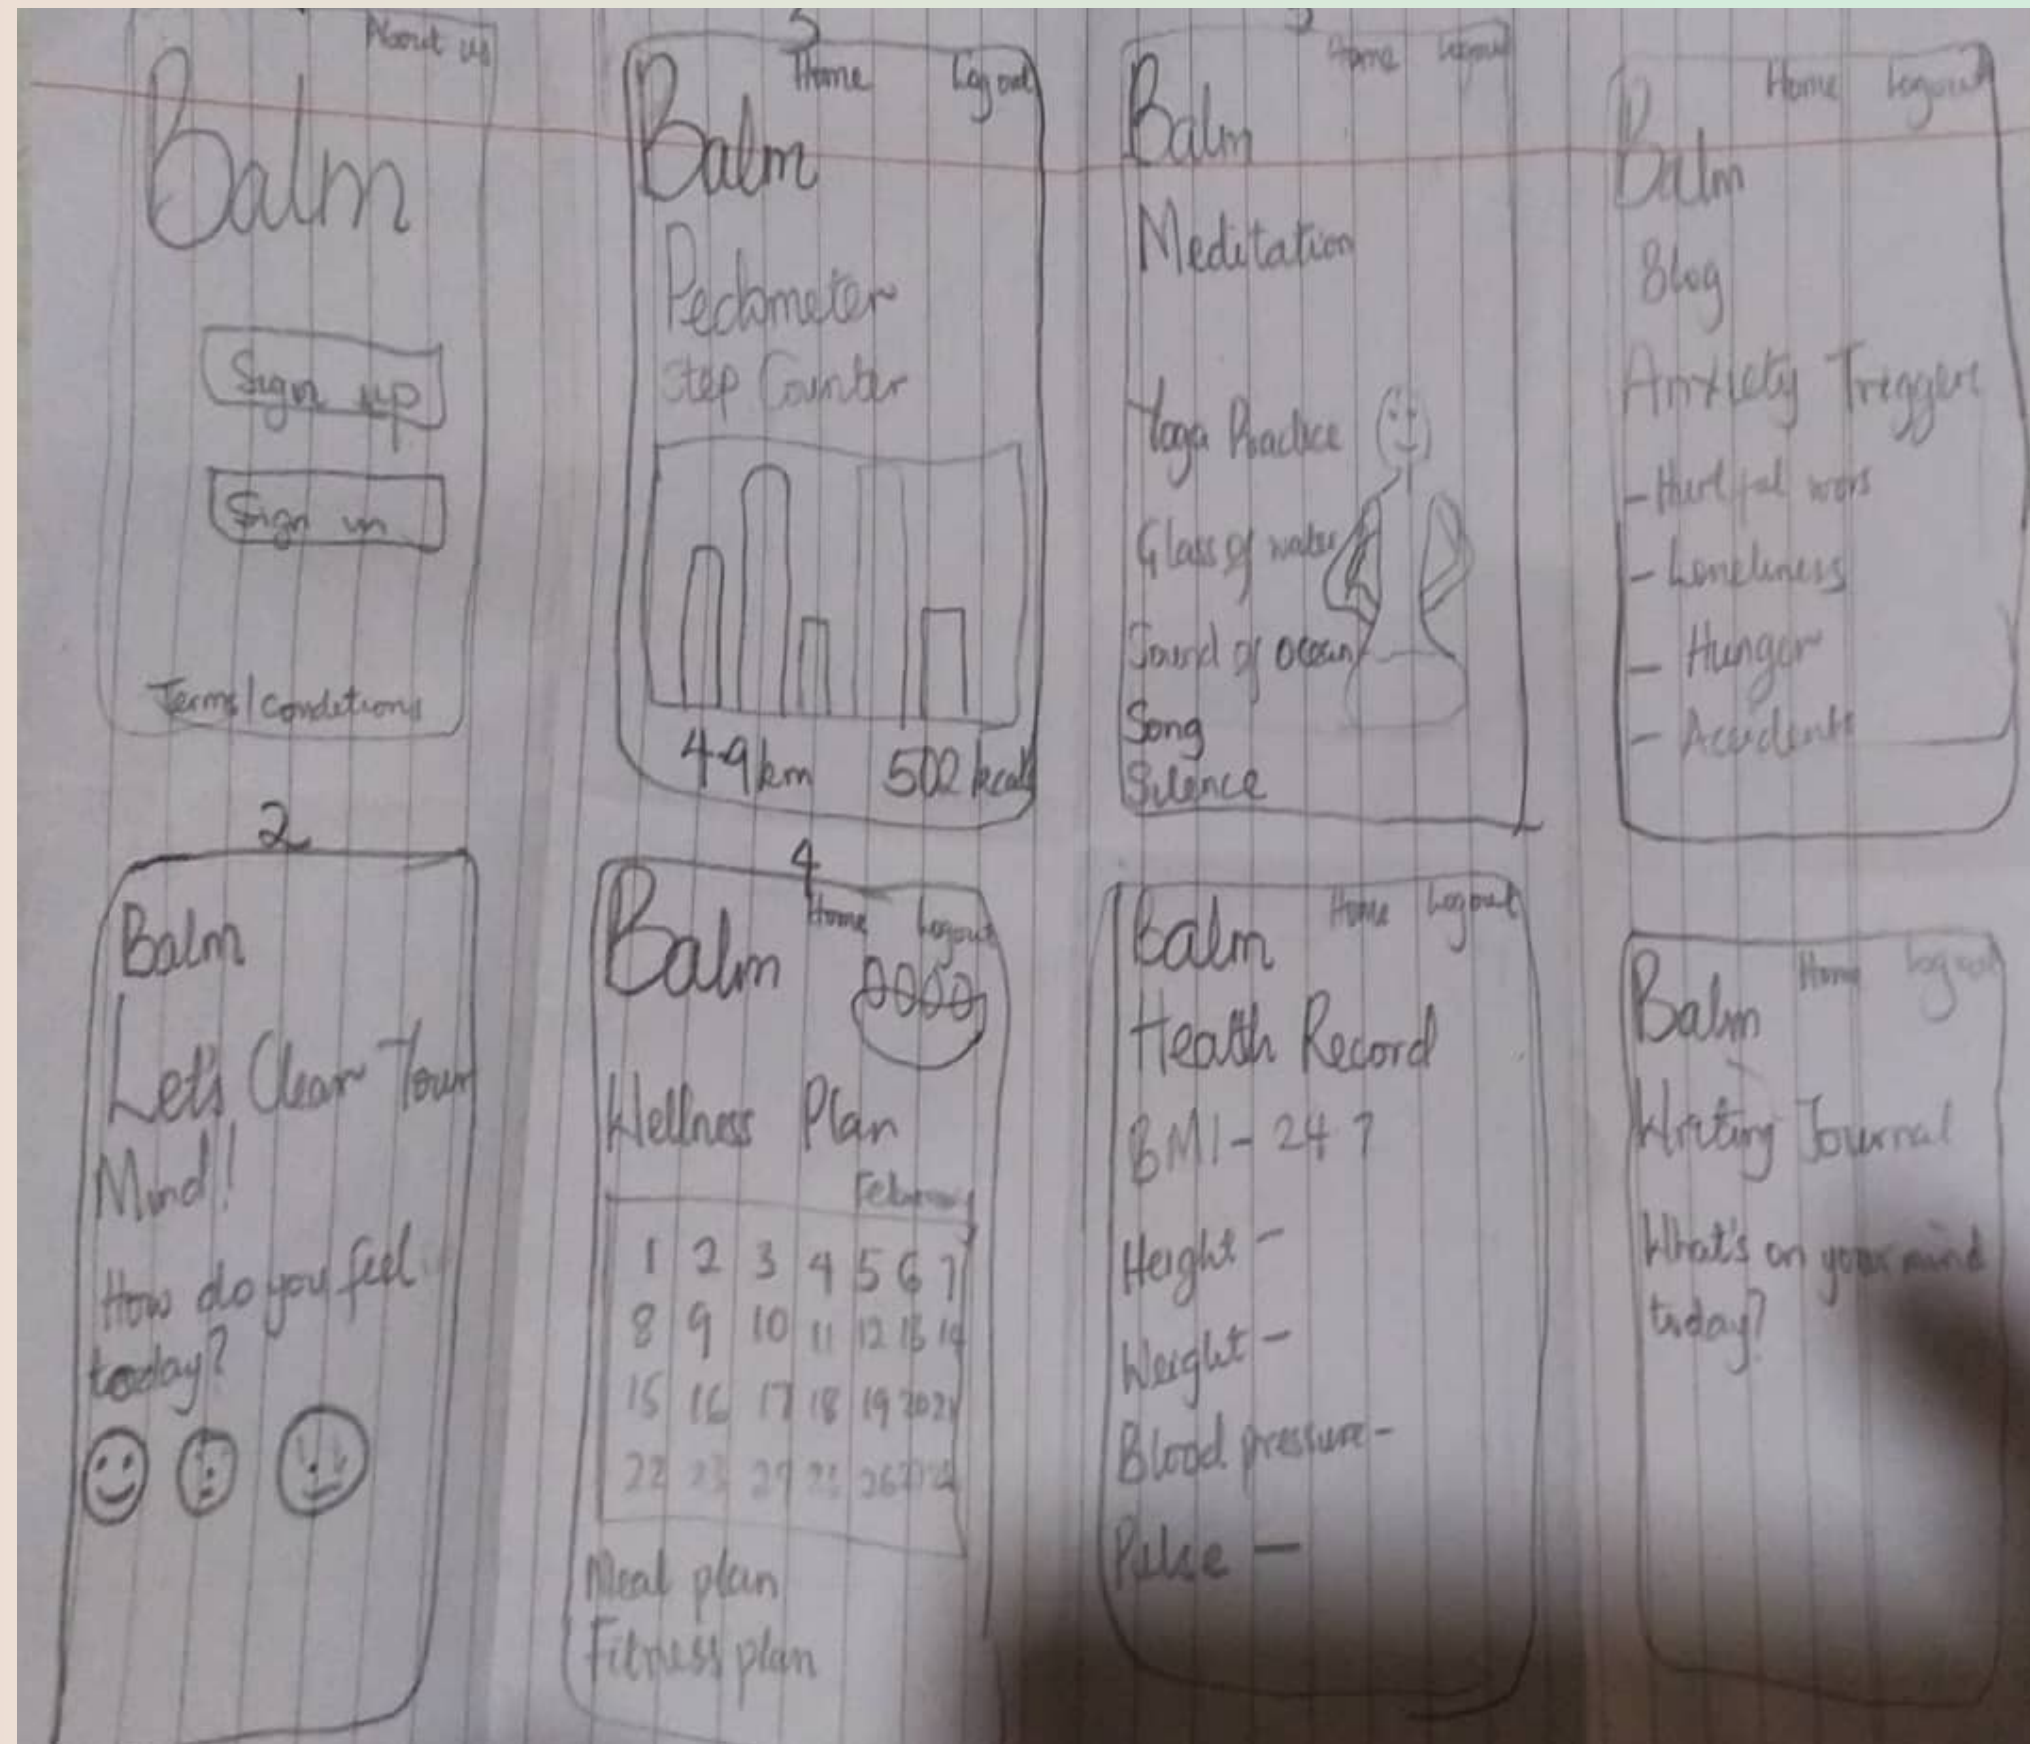 About us
Balm
Sign up
Sign in
Terms/conditions
2
Balm
Let's Clear Your
Mind!
How do you feel
today?
Home Log out
Balm
Pedometer
Step Counter
4.9km 502 kcal
4
Home Logout
Balm
Wellness Plan
February
1 2 3 4 5 6 7
8 9 10 11 12 13 14
15 16 17 18 19 20 21
22 23 24 25 26 27 28
Meal plan
Fitness plan
Home Logout
Balm
Meditation
Yoga Practice
Glass of water
Sound of ocean
Song
Silence
Home Logout
Balm
Health Record
BMI - 24 7
Height -
Weight -
Blood pressure -
Pulse -
Home Logout
Balm
Blog
Anxiety Triggers
- Hurtful wors
- Loneliness
- Hunger
- Accidents
Home Logout
Balm
Writing Journal
What's on your mind
today?